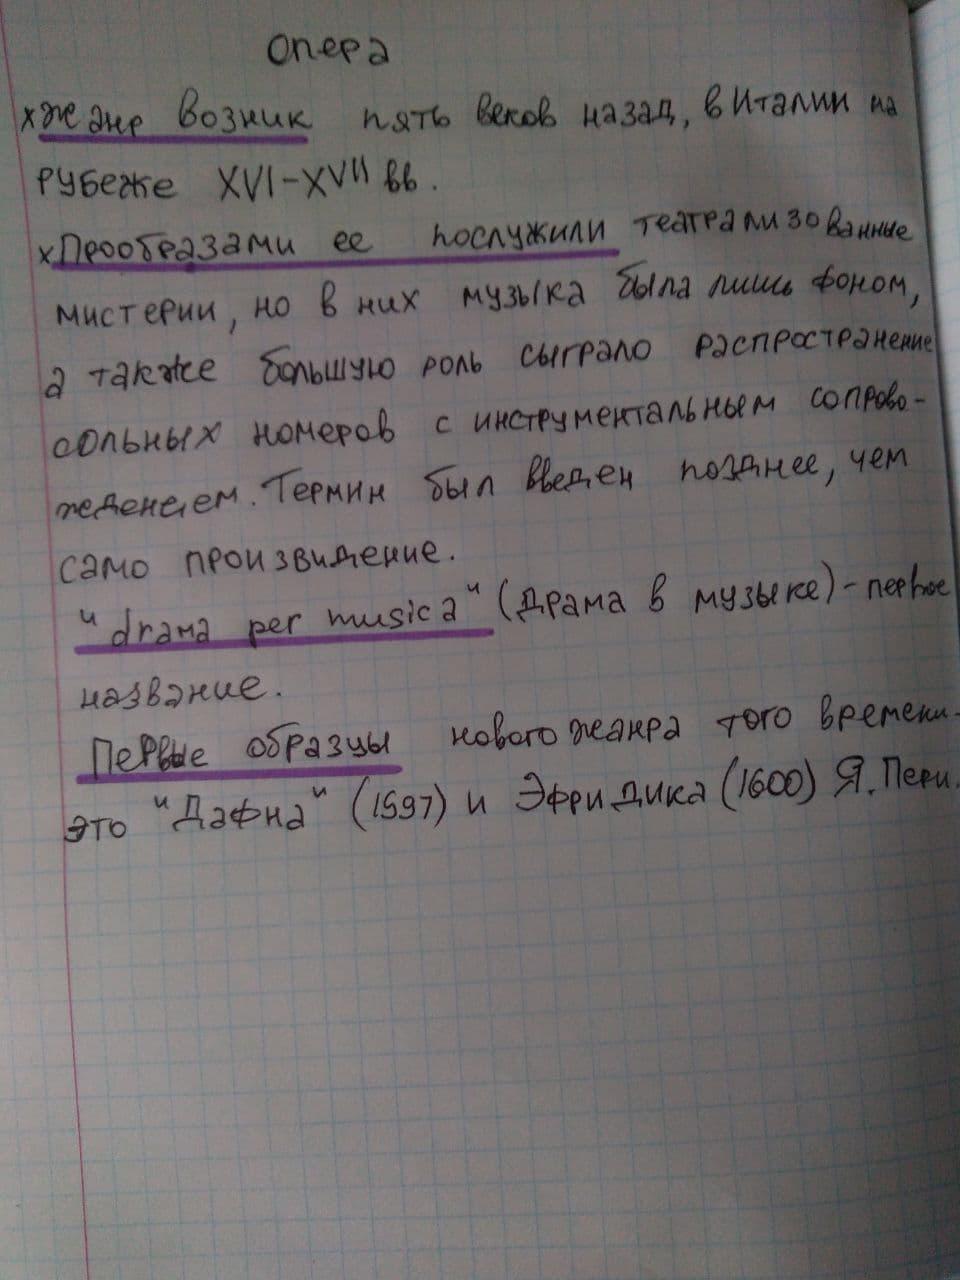 опера
х жанр возник пять веков назад, в Италии на
рубеже XVI-XVII вв.
х Прообразами ее послужили театрализованные
мистерии, но в них музыка была лишь фоном,
а также большую роль сыграло распространение
сольных номеров с инструментальным сопрово-
ждением. Термин был введен позднее, чем
само произвидение.
"drama per musica" (драма в музыке) - первое
название.
Первые образцы нового жанра того времени-
это "Дафна" (1597) и Эфридика (1600) Я. Пери.